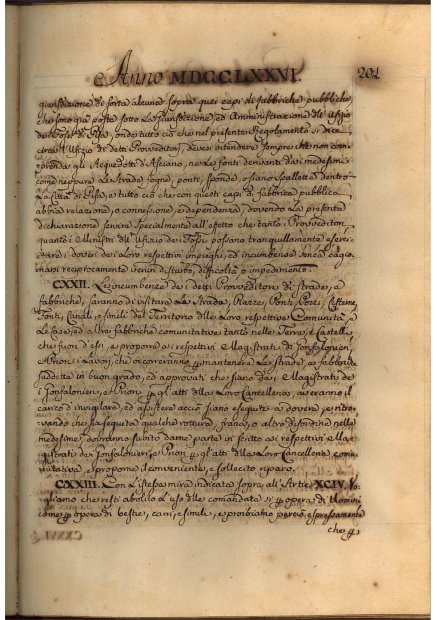 Anno MDCCLXXVI.
201
giurisdizione di sorta alcuna sopra quei capi di fabbriche pubbliche,
che sono già poste sotto la Giurisdizione, ed Amministrazione dell'Ufizio
de Fossi di Pisa, onde tutto ciò che nel presente Regolamento si dice
circa l'Ufizio di detti Provveditori, devesi intendere sempre che non com-
prenda gli Acquedotti d'Asciano, ne le fonti derivanti da i medesimi
come neppure le Strade, fogne, ponti, sponde, o siano spallette dentro
la Città di Pisa, e tutto ciò che con questi capi di fabbrica pubblica
abbia relazione, o connessione, e dipendenza, dovendo la presente
dichiarazione servire specialmente all'effetto che tanto i Provveditori
quanto i Ministri dell'Ufizio dei Fossi possano tranquillamente eserci-
tare i doveri dei loro respettivi impieghi, ed incumbenze senza cagio-
narsi reciprocamente verun disturbo, difficoltà o impedimento.
CXXII. Le incumbenze dei detti Provveditori di Strade, e
fabbriche, saranno di visitare le Strade, Piazze, Ponti, Pozzi, Cisterne,
Fonti, Canali, e simili del Territorio delle loro respettive Comunità e
le Case, ed altre fabbriche comunitative tanto nelle Terre, e Castelli,
che fuori d'essi, e proporre ai respettivi Magistrati di Gonfalonieri,
e Priori i lavori, che occorreranno p mantenere le Strade, e fabbriche
suddette in buon grado, ed approvati che siano dai Magistrati de
i Gonfalonieri, e Priori p gl'atti della loro Cancelleria, averanno il
carico d'invigilare, ed assistere acciò siano eseguiti a dovere, e ritro-
vando che sia seguita qualche rottura, frana, o altro disordine nelle
medesime, dovranno subito darne parte in scritto ai respettivi Ma-
gistrati dei Gonfalonieri, e Priori p gl'atti della loro Cancelleria comu-
nitativa, e proporne il conveniente, e sollecito riparo.
CXXIII. Con l'istessa mira indicata sopra all'Artic. XCIV. Vo-
gliamo che resti abolito l'uso delle comandate sì p opera di Uomini
come p opera di bestie, carri, e simili, e proibiamo perciò espressamente
che p